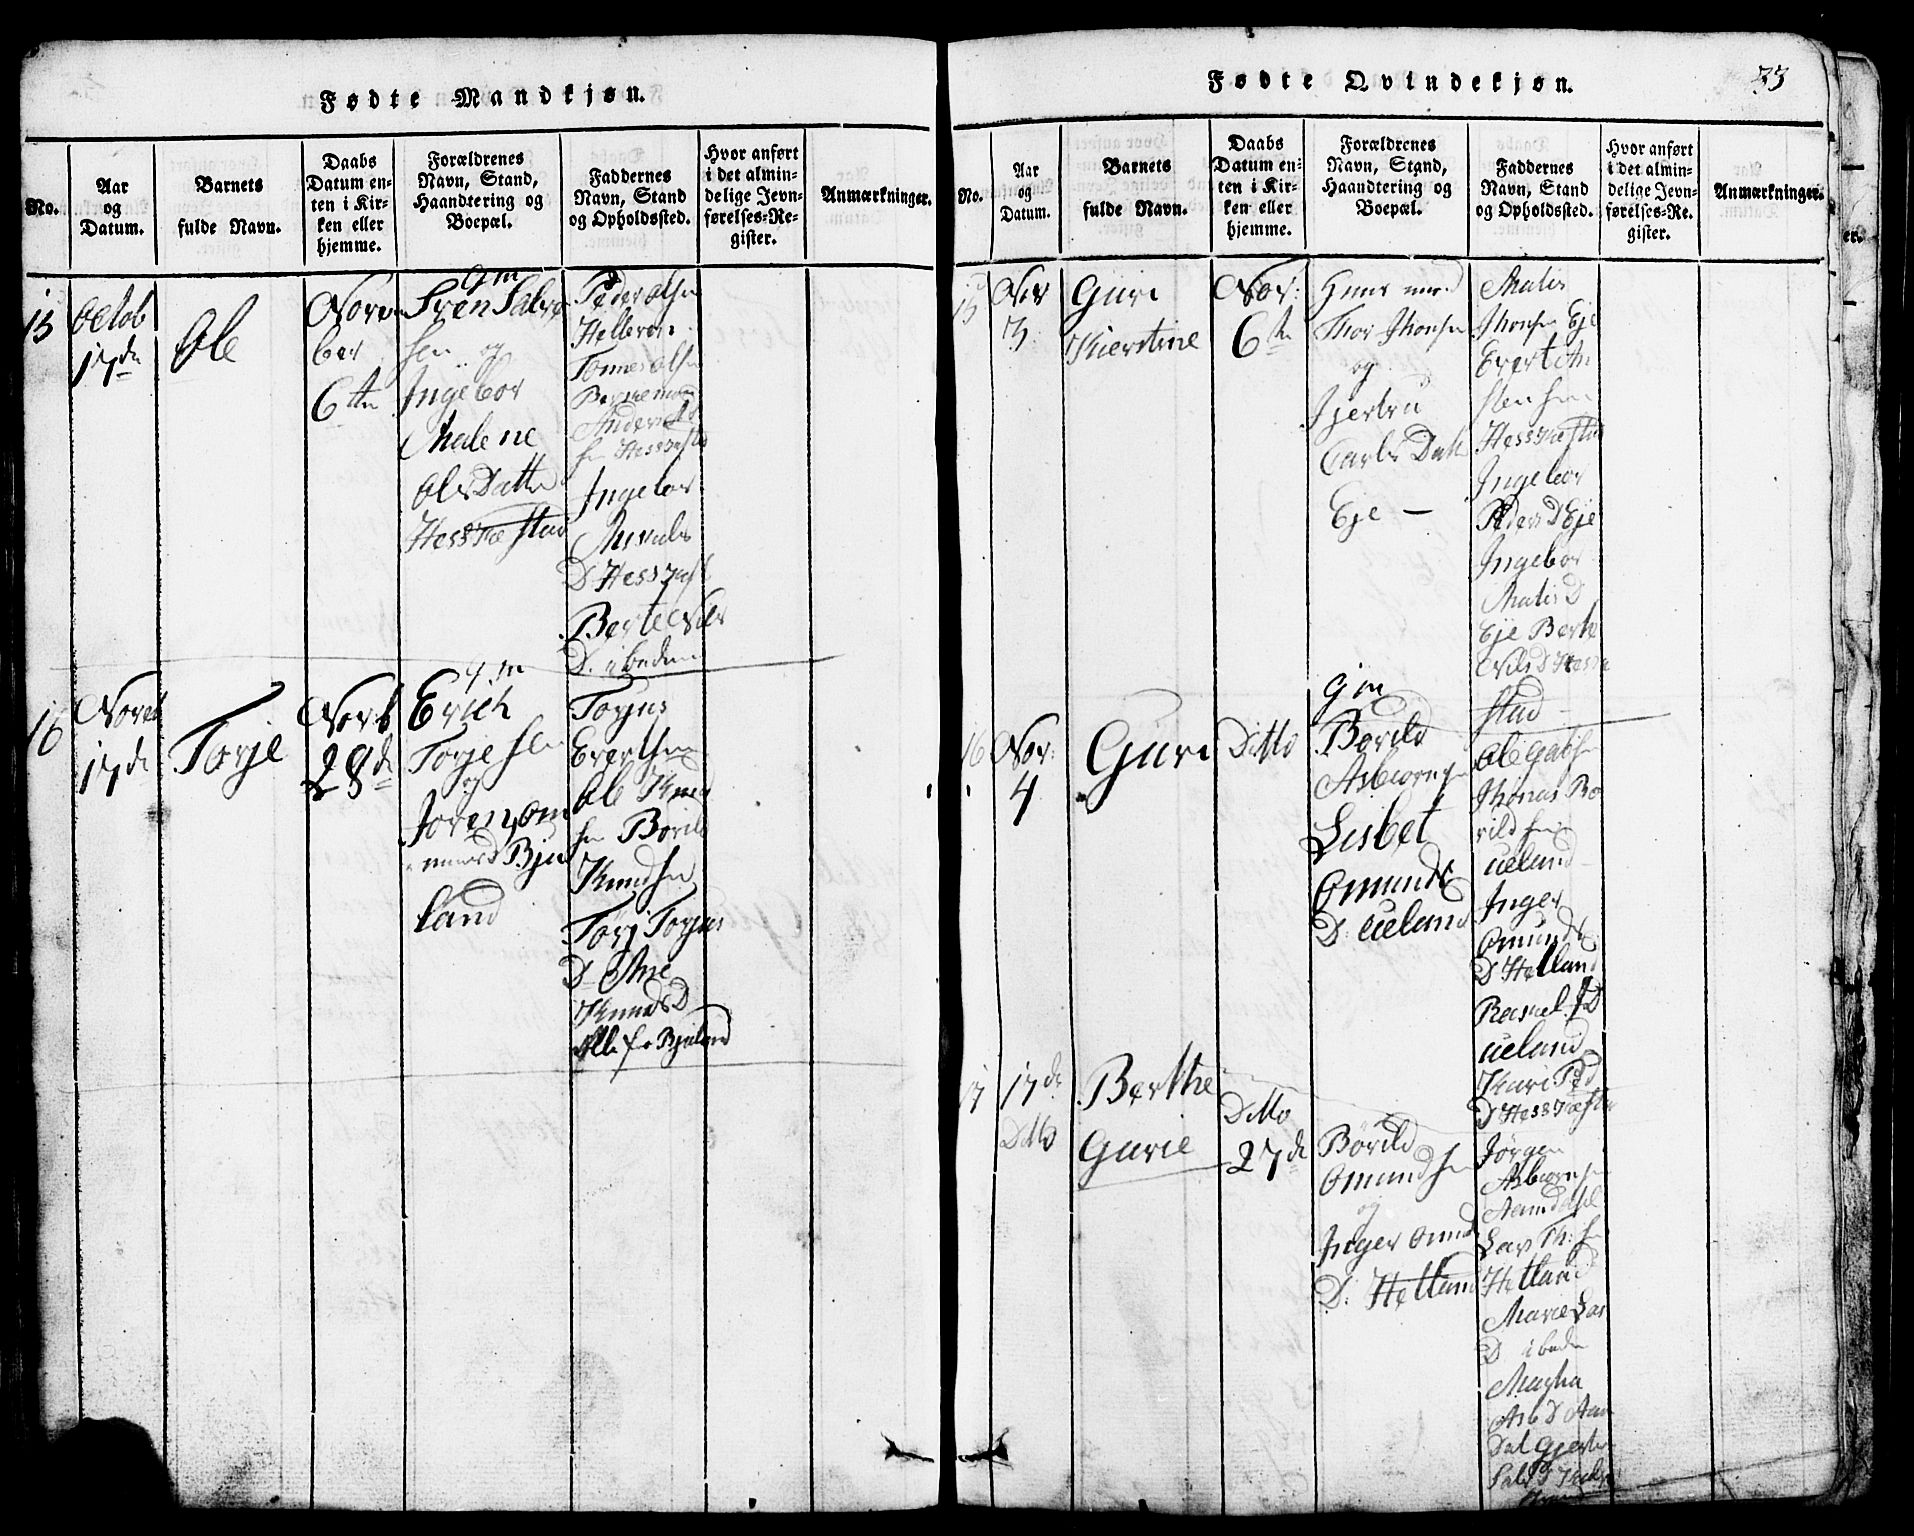 Fødte Mandkjøn.
No.
Aar
og
Datum.
Barnets
fulde Navn.
Daabs
Datum en-
ten i Kir-
ken eller
hjemme.
Forældrenes
Navn, Stand,
Haandtering og
Boepæl.
Faddernes
Navn, Stand
og Opholdssted.
Hvor anført
i det almin-
delige Jevn-
førelses-Re-
gister.
Anmærkninger.
15
Octob
17de
Ole
Novem
ber
6te
Gm
Sven Salve
sen og
Ingebor
Malene
OlsDatter
Hessnæstad
Peder Olsen
Helleren
Tønnes Olsen
Ingebor
D Hessnæst
Berte Nils
D. ibedem
16
Noveb
17de
Torje
Novb
28de
Gm
Erich
Torjesen
og
Jorenom
Bju
land
Torjus
Evertsen
Ole Knud
sen Børild
Knudsen
Torj Torjus
D Ane
KnudsD
Alle fr Bjuland
Fødte Qvindekjøn.
33
No.
Aar
og
Datum.
Barnets
fulde Navn.
Daabs
Datum en-
ten i Kir-
ken eller
hjemme.
Forældrenes
Navn, Stand,
Haandtering og
Boepæl.
Faddernes
Navn, Stand
og Opholdssted.
Hvor anført
i det almin-
delige Jevn-
førelses-Re-
gister.
Anmærkninger.
15
Nov
3
Guri
Kierstine
Nov:
6te
Thor Jhonsen
og
Gjertru
Carls Datt
Eje —
Matis
Jhonsen Eje
Evert An
stensen
Hessnæstad
Ingebor
Peders D Eje
Ingebor
Matis D
Eje Berte
Nils D Hessnæ
stad
16
Nov:
4
Guri
Ditto
Gm
Børild
Asbiørnsen
Lisbet
Omunds
D: Ueland
Ole Gabsen
Jhonas Bø
rildsen
Ueland
Inger
Omunds
D Helland
Rasmel. JD
Ueland
Kari Ped
D Hessnæstad
17
17de
Ditto
Berthe
Gurie
Ditto
27de
Børild
Omundsen
og
Inger Omd
D: Hetland
Jørgen
Asbiørnsen
Aamdahl
Lar Th: sen
Hetland
Marie Lar
D ibede
Asb D Aam
Dal Gjertr